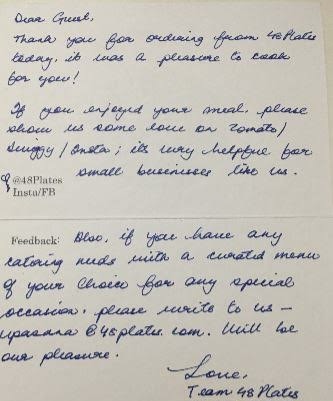 Dear Guest,
Thank you for ordering from 48Plates
today, it was a pleasure to cook
for you!
If you enjoyed your meal, please
show us some love on Zomato/
Swiggy/Insta; its very helpful for
small businesses like us.
@48Plates
Insta/FB
Feedback: Also, if you have any
catering needs with a curated menu
of your choice for any special
occasion, please write to us –
upasana@48plates.com. Will be
our pleasure.
Love,
Team 48Plates